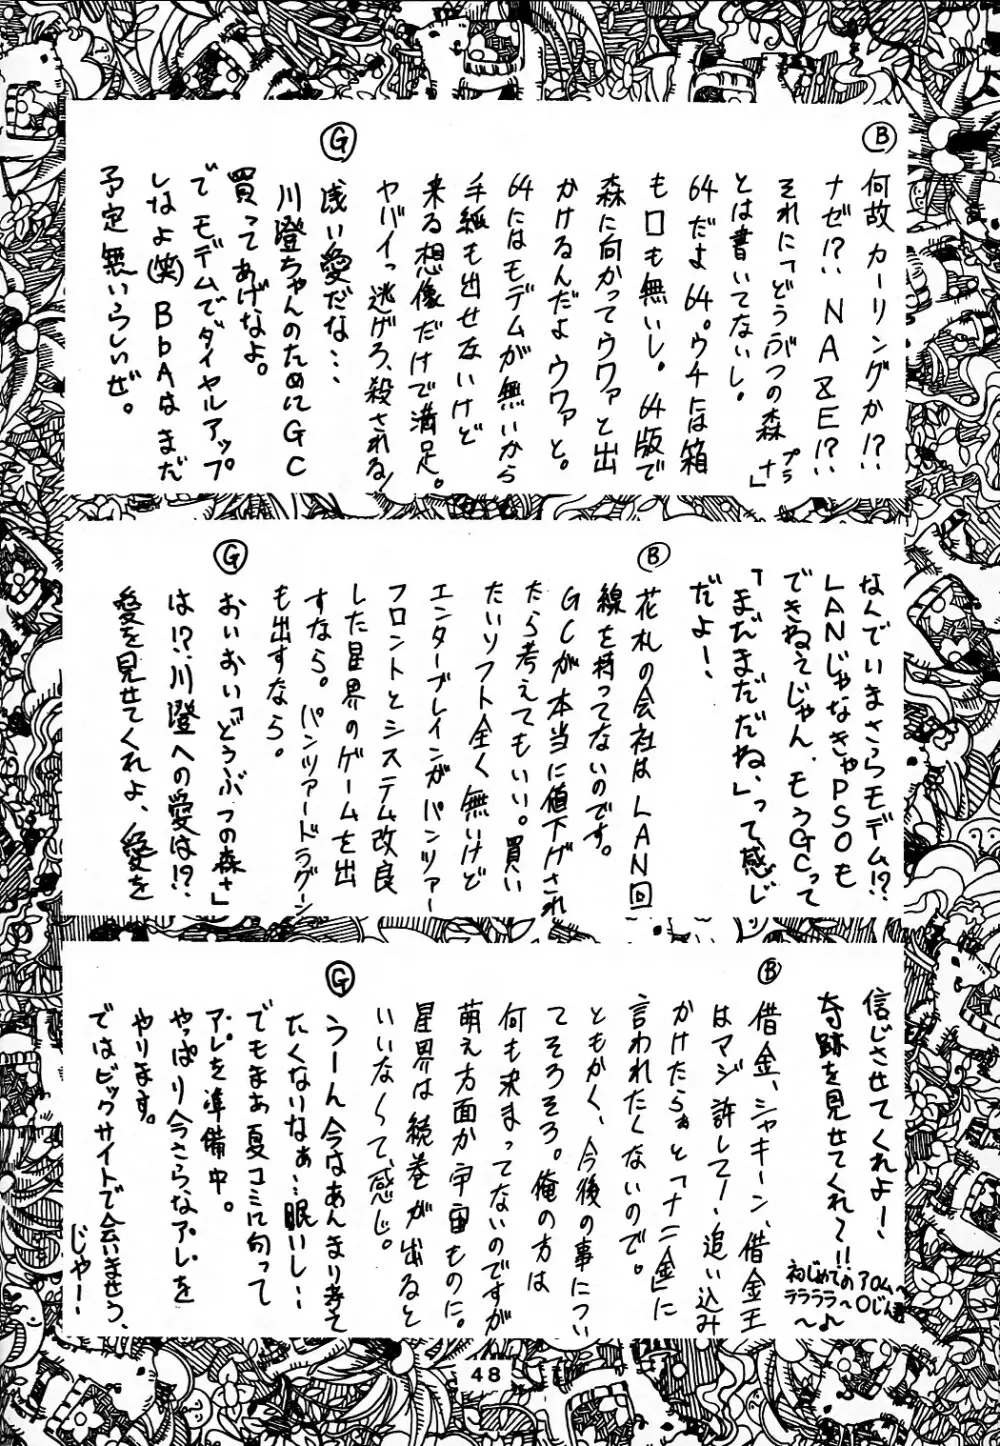 Ⓑ
何故カーリングか!?
ナゼ!? NAZE!?
それに「どうぶつの森プラナ」
とは書いてないし。
64だよ64。ウチには箱
も口も無いし。64版で
森に向かってウワァと出
かけるんだよウワァと。
64にはモデムが無いから
手紙も出せないけど
来る想像だけで満足。
ヤバイっ逃げろ、殺される!
Ⓖ
浅い愛だな…
川澄ちゃんのためにGC
買ってあげなよ。
でモデムでダイヤルアップ
しなよ(笑)BbAはまだ
予定無いらしいぜ。
なんでいまさらモデム!?
LANじゃなきゃPSOも
できねえじゃん。もうGCって
「まだまだだね、」って感じ
だよー、
Ⓑ
花札の会社はLAN回
線を持ってないのです。
GCが本当に値下げされ
たら考えてもいい。買い
たいソフト全く無いけど
エンターブレインがパンツァー
フロントとシステム改良
した星界のゲームを出
すなら。パンツァードラグーン
も出すなら。
Ⓖ
おいおい「どうぶつの森+」
は!?川澄への愛は!?
愛を見せてくれよ、愛を
信じさせてくれよー、
奇跡を見せてくれ〜!!
初じめてのアロム〜
ラララララ〜♪
Ⓑ
借金、シャキーン、借金王
はマジ許してー、追い込み
かけたらぁと「ナニ金」に
言われたくないので。
ともかく、今後の事につい
てそろそろ。俺の方は
何も決まってないのですが
萌え方面か宇宙ものに。
星界は続巻が出ると
いいな〜って、感じ。
Ⓖ
うーん今はあんまり考え
たくないなぁ…眠いし…
でもまぁ夏コミに向って
アレを準備中。
やっぱり今さらなアレを
やります。
ではビックサイトで会いませう、
じゃー、
48